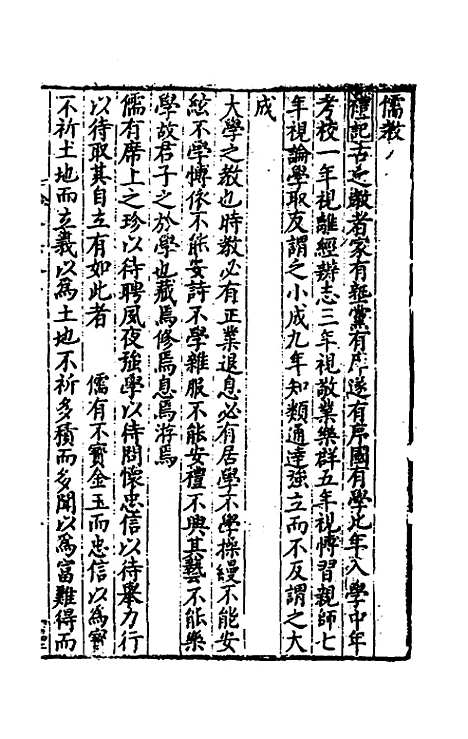 儒教
禮記古之教者家有塾黨有庠遂有序國有學比年入學中年
考校一年視離經辨志三年視敬業樂群五年視愽習親師七
年視論學取友謂之小成九年知類通達強立而不反謂之大
成
大學之教也時教必有正業退息必有居學不學操縵不能安
絃不學愽依不能安詩不學雜服不能安禮不興其藝不能樂
學故君子之於學也藏焉修焉息焉游焉
儒有席上之珍以待聘夙夜強學以待問懷忠信以待舉力行
以待取其自立有如此者 儒有不寳金玉而忠信以為寳
不祈土地而立義以為土地不祈多積而多聞以為富難得而